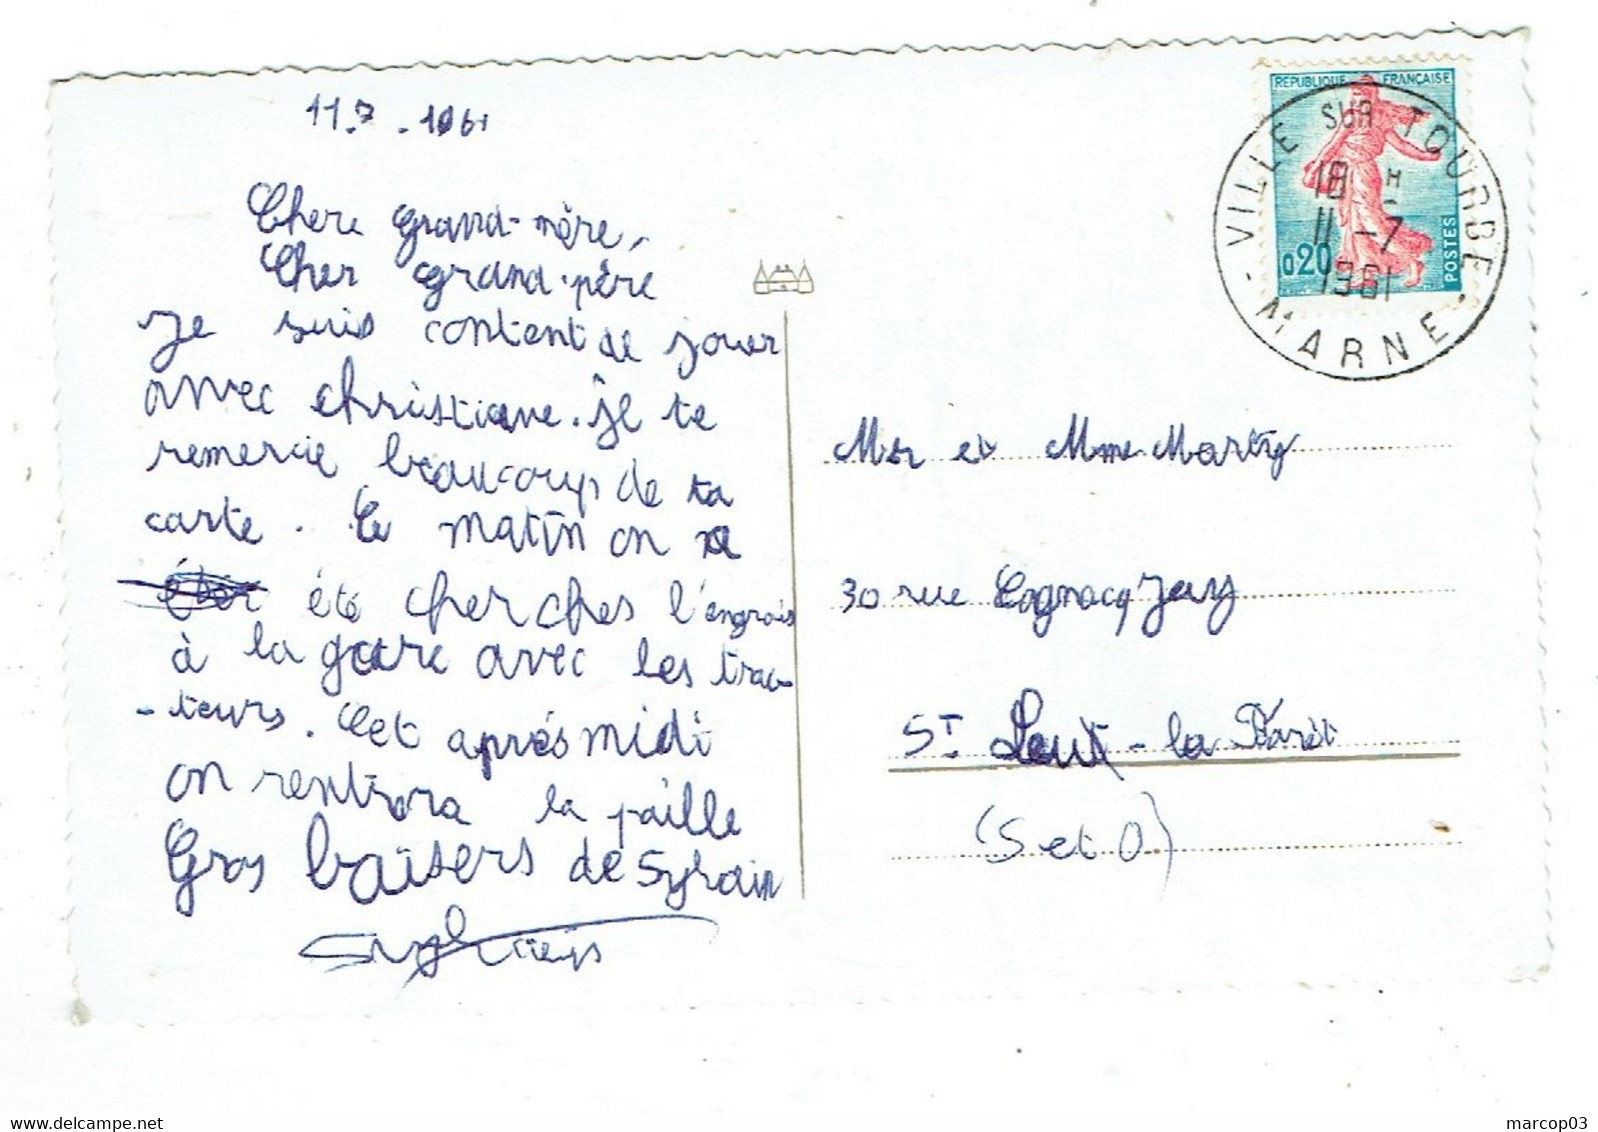 11.7.1961
Chere grand-mère,
Cher grand-père
Je suis content de jouer
avec christiane. Je te
remercie beaucoup de ta
carte. Ce matin on a
été cherches l'engrais
à la gare avec les trac-
-teurs. Cet après midi
on rentrera la paille
Gros baisers de Sylvain
REPUBLIQUE FRANÇAISE
0,20
POSTES
VILLE SUR TOURBE
18 H
11 -7
1961
- MARNE -
Mr et Mme Marty
30 rue Cognacq Jay
ST Leu - la Forêt
(S et O)
marcop03